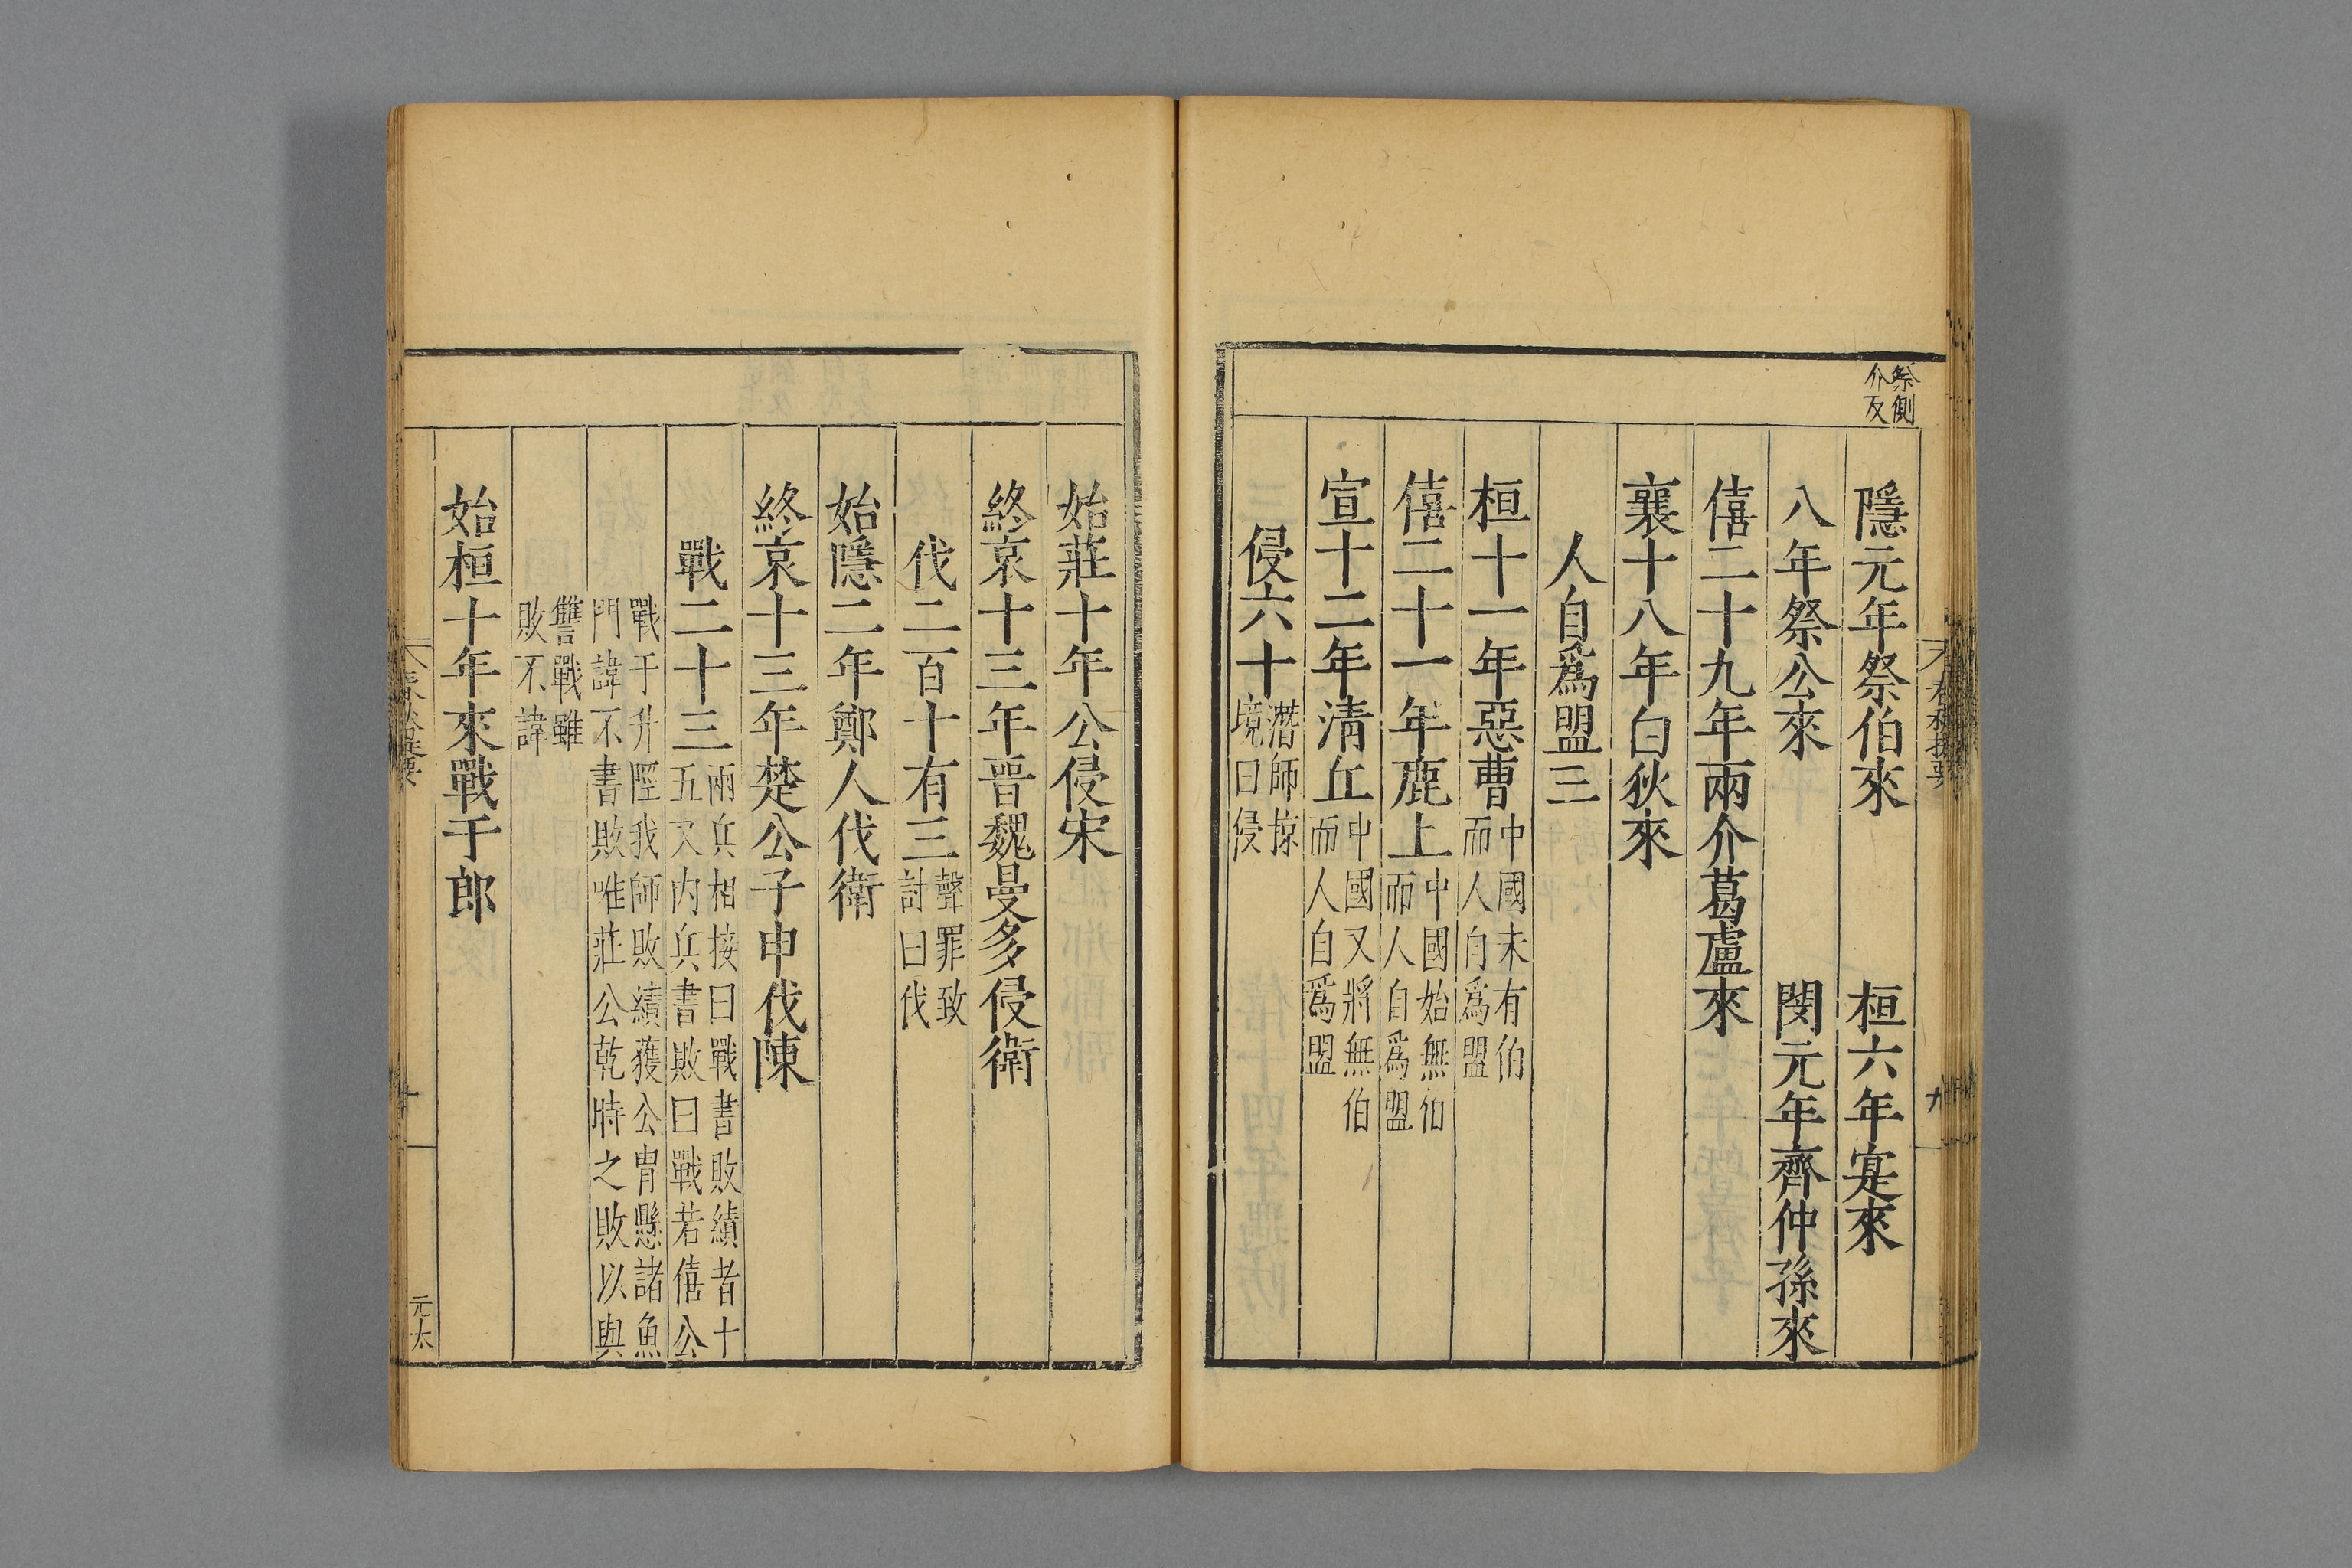 祭側
介反
隱元年祭伯來　桓六年寔來
八年祭公來　閔元年齊仲孫來
僖二十九年兩介葛盧來
襄十八年白狄來
人自爲盟三
桓十一年惡曹中國未有伯而人自爲盟
僖二十一年鹿上中國始無伯而人自爲盟
宣十二年淸丘中國又將無伯而人自爲盟
侵六十潛師掠境曰侵
九
始莊十年公侵宋
終哀十三年晉魏曼多侵衛
伐二百十有三聲罪致討曰伐
始隱二年鄭人伐衛
終哀十三年楚公子申伐陳
戰二十三兩兵相接曰戰書敗績者十五又内兵書敗曰戰若僖公
戰于升陘我師敗績獲公胄懸諸魚門諱不書敗唯莊公乾時之敗以與
讐戰雖敗不諱
始桓十年來戰于郎
春秋提要
十
元太